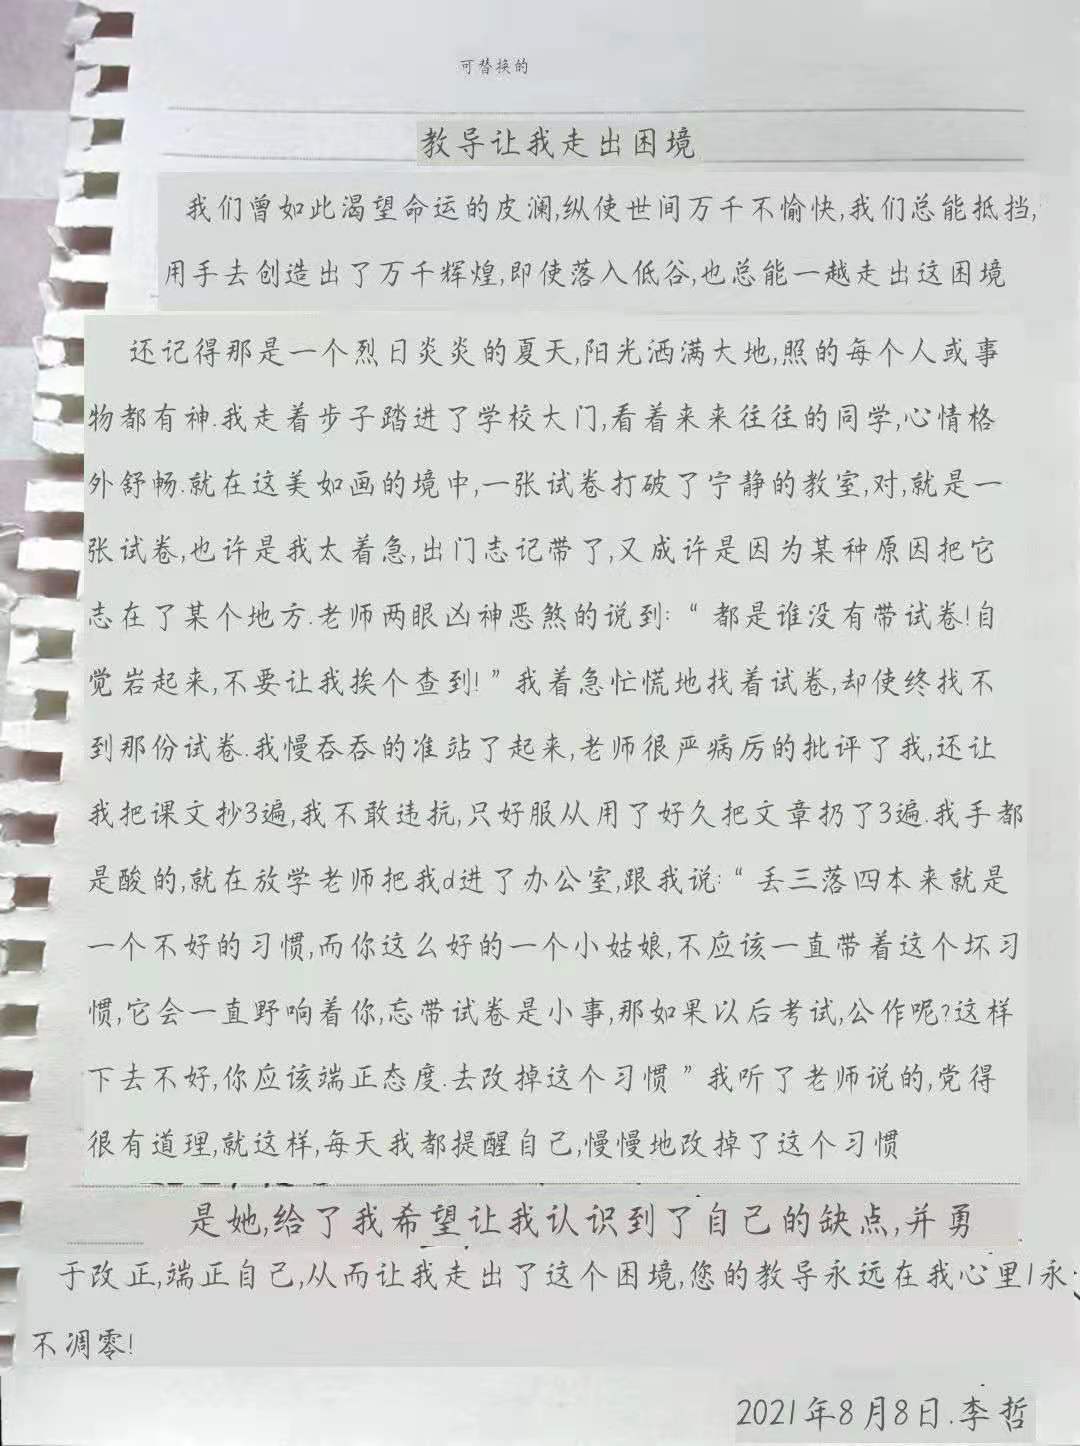 可替换的
教导让我走出困境
我们曾如此渴望命运的皮澜,纵使世间万千不愉快,我们总能抵挡,
用手去创造出了万千辉煌,即使落入低谷,也总能一越走出这困境
还记得那是一个烈日炎炎的夏天,阳光洒满大地,照的每个人或事
物都有神.我走着步子踏进了学校大门,看着来来往往的同学,心情格
外舒畅.就在这美如画的境中,一张试卷打破了宁静的教室,对,就是一
张试卷,也许是我太着急,出门志记带了,又成许是因为某种原因把它
志在了某个地方.老师两眼凶神恶煞的说到:“都是谁没有带试卷!自
觉岩起来,不要让我挨个查到!”我着急忙慌地找着试卷,却使终找不
到那份试卷.我慢吞吞的准站了起来,老师很严病厉的批评了我,还让
我把课文抄3遍,我不敢违抗,只好服从用了好久把文章扔了3遍.我手都
是酸的,就在放学老师把我d进了办公室,跟我说:“丢三落四本来就是
一个不好的习惯,而你这么好的一个小姑娘,不应该一直带着这个坏习
惯,它会一直野响着你,忘带试卷是小事,那如果以后考试,公作呢?这样
下去不好,你应该端正态度.去改掉这个习惯”我听了老师说的,党得
很有道理,就这样,每天我都提醒自己,慢慢地改掉了这个习惯
是她,给了我希望让我认识到了自己的缺点,并勇
于改正,端正自己,从而让我走出了这个困境,您的教导永远在我心里1永
不凋零!
2021年8月8日.李哲